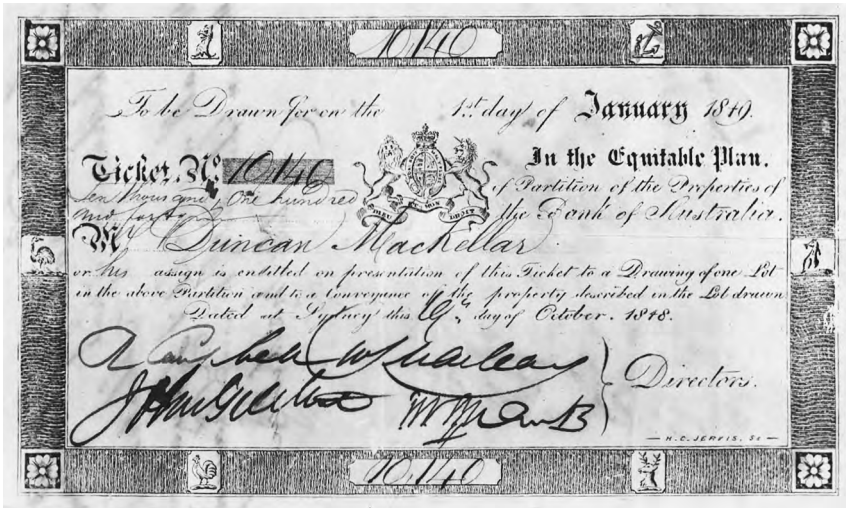 10,140
To be Drawn for on the 1st day of January 1849.
Ticket No. 10,140 In the Equitable Plan.
Ten thousand, One hundred of Partition of the Properties of
and forty the Bank of Australia.
Mr. Duncan Mackellar
or his assign is entitled on presentation of this Ticket to a Drawing of one Lot
in the above Partition and to a Conveyance of the property described in the Lot drawn
Dated at Sydney this day of October. 1848.
DIEU ET MON DROIT
Campbell
Directors.
H.C. JERVIS, Sc
10,140